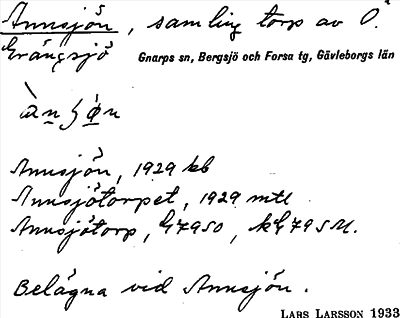 Annsjön, samling torp av Ö.
Grängsjö Gnarps sn, Bergsjö och Forsa tg, Gävleborgs län
Annsjön, 1929 kb
Annsjötorpet, 1929 mtl
Annsjötorp, G7950, kG795M.
Belägna vid Annsjön.
LARS LARSSON 1933